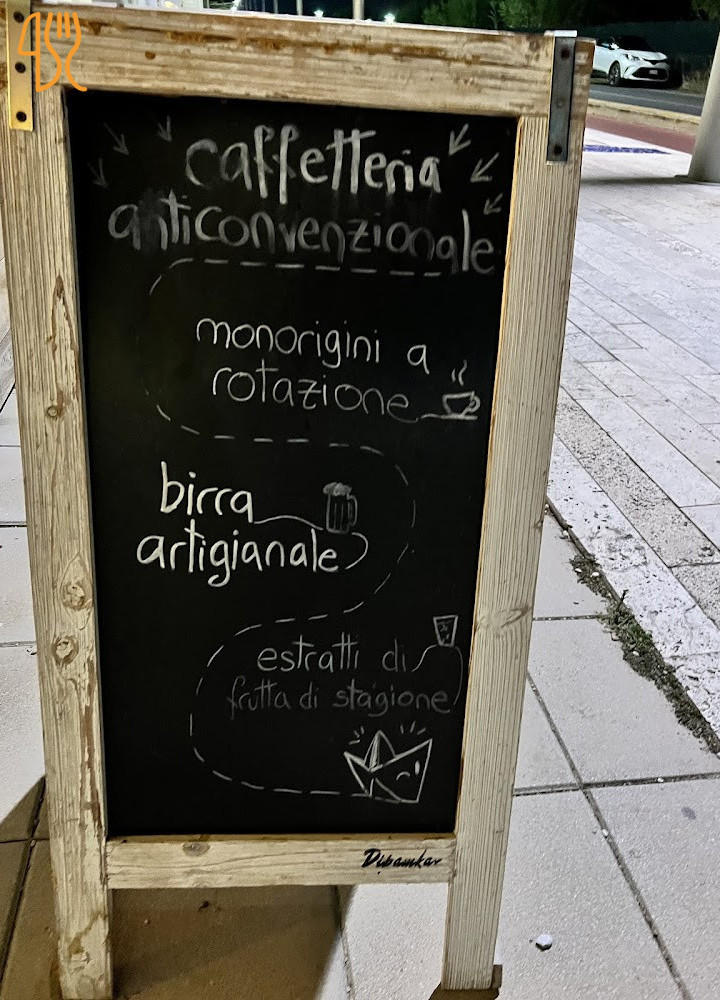 caffetteria
anticonvenzionale
monorigini a
rotazione
birra
artigianale
estratti di
frutta di stagione
Dipamkar